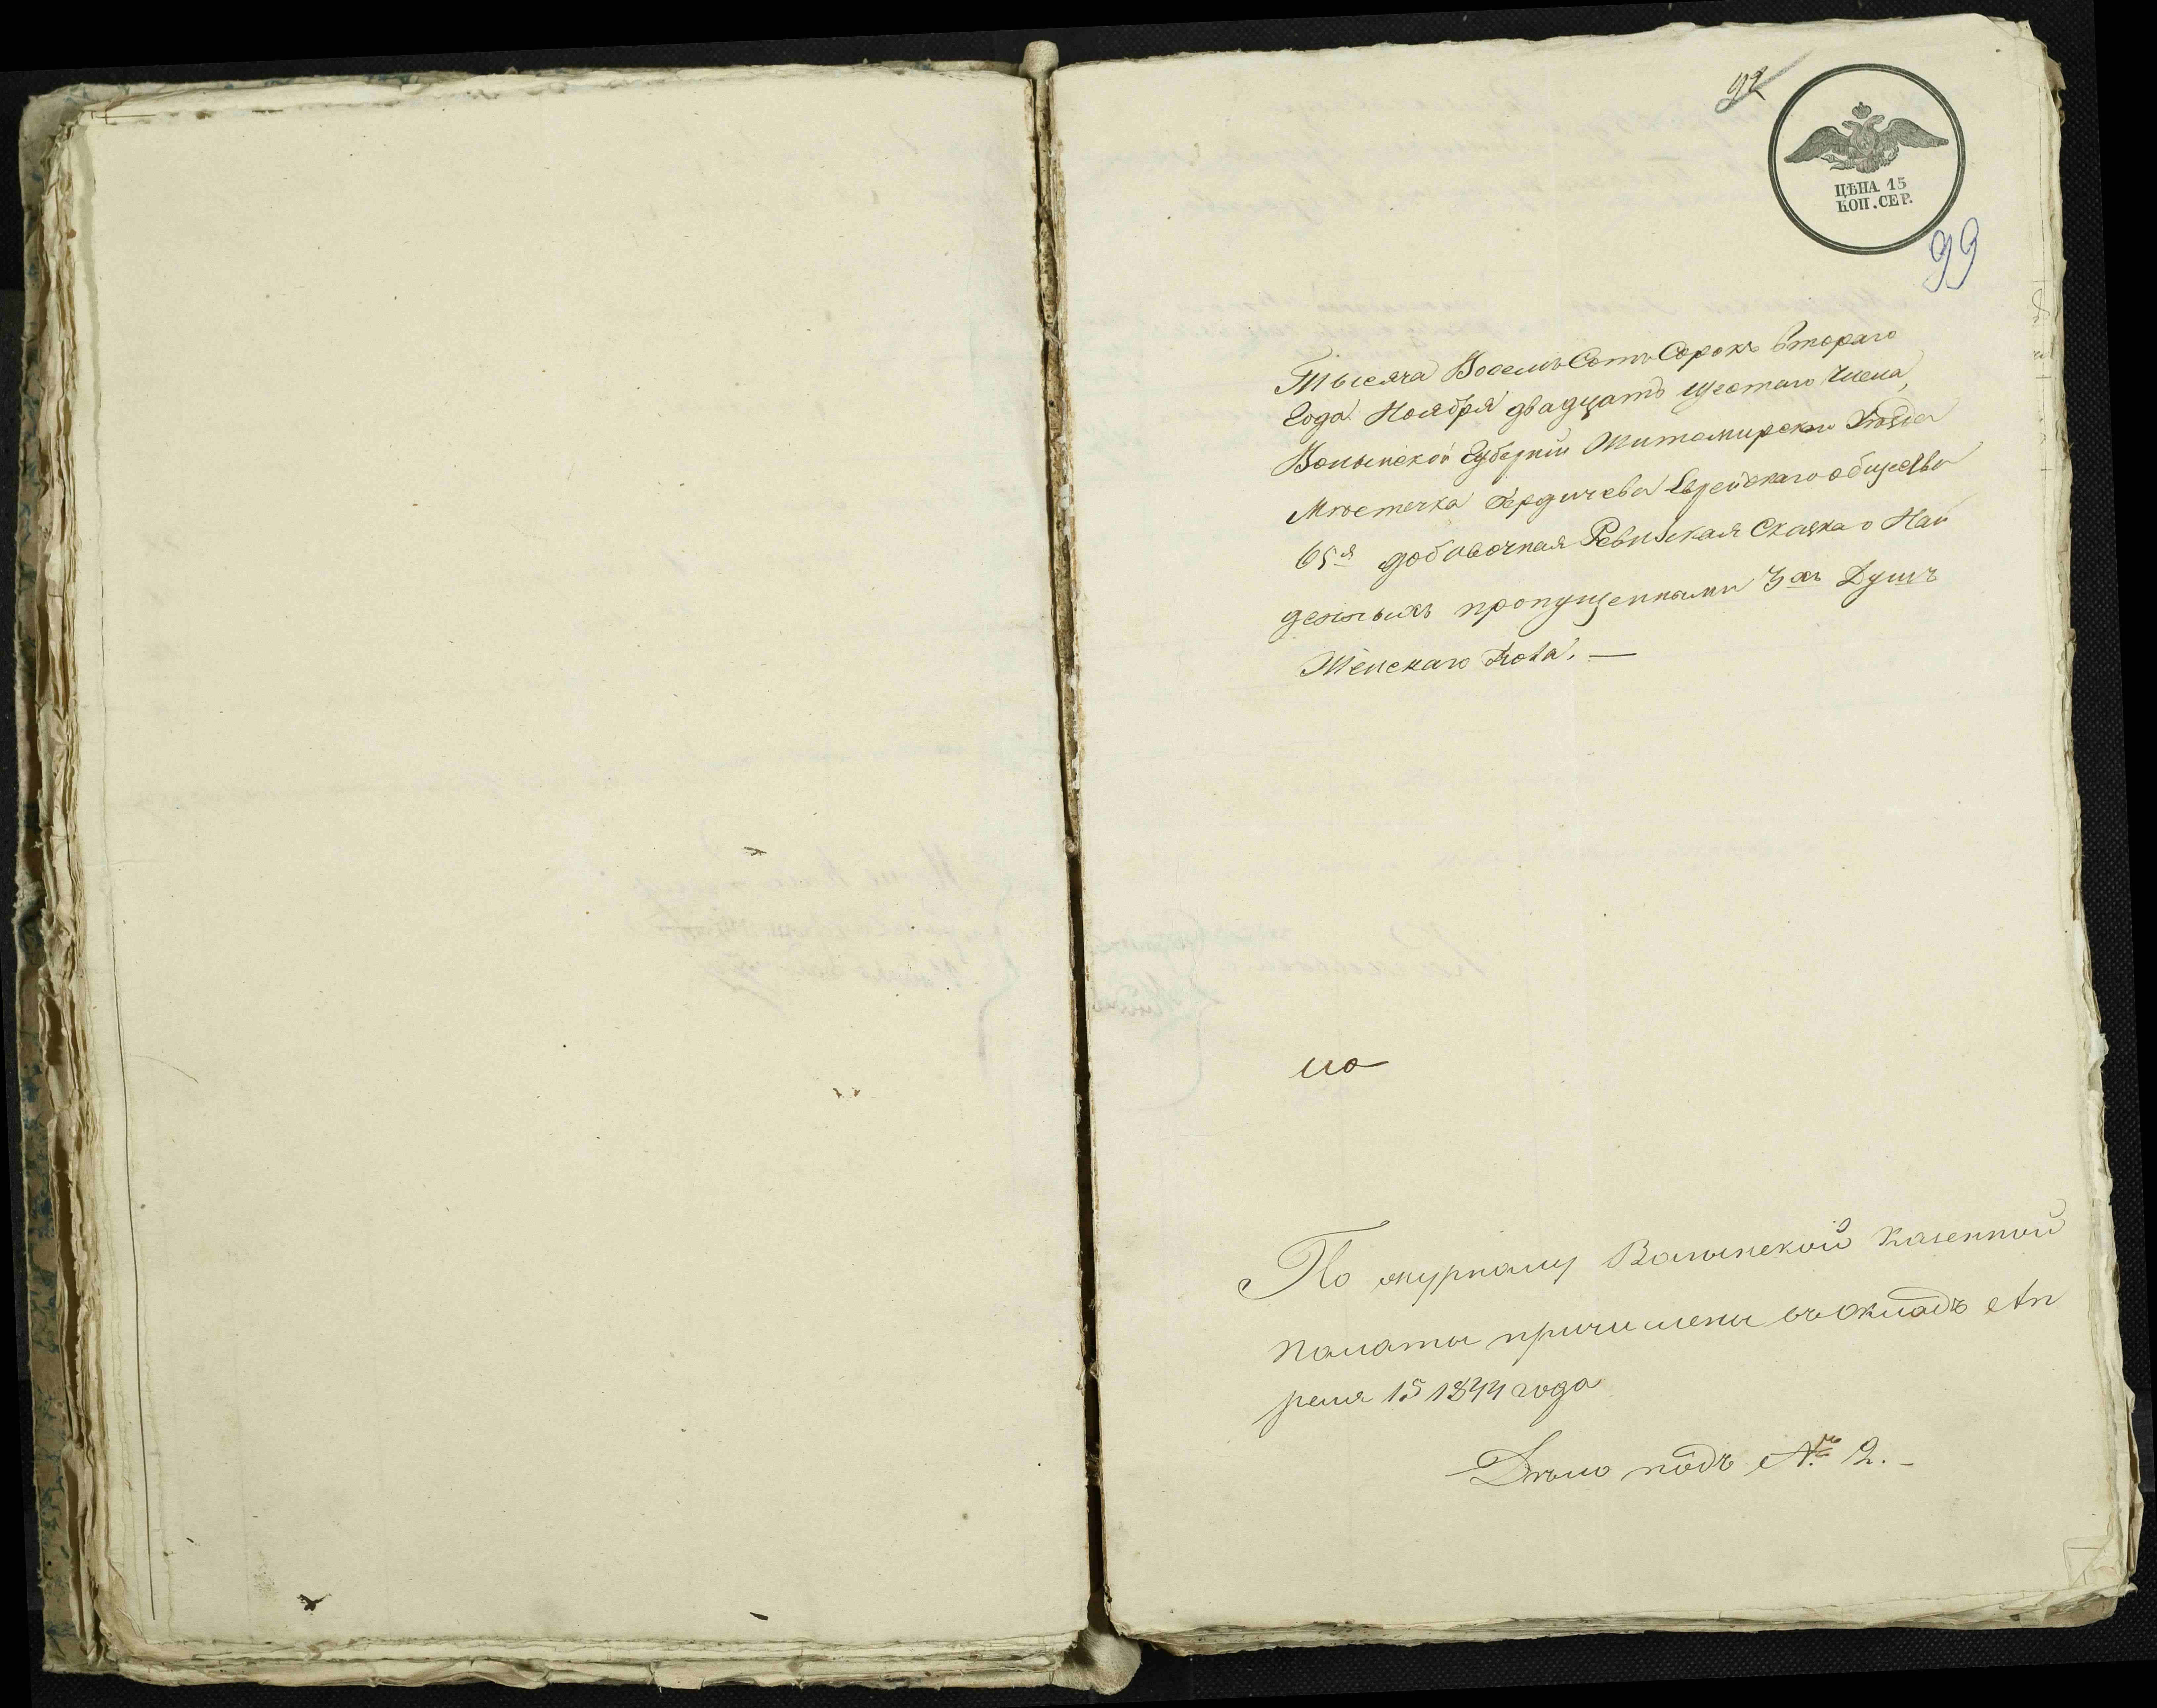 92
ЦѢНА 15
КОП. СЕР.
99
Тысяча Восемь Сотъ Сорокъ втораго
Года Ноября двадцать шестаго Числа,
Волынской Губерніи Житомирскаго Уѣзда
Мѣстечка Бердичева Еврейскаго общества
65я добавочная Ревизская Сказка о Най
денныхъ пропущенными 3хъ Душъ
Женскаго Пола. —
По журналу Волынской Казенной
Палаты причислены въ окладъ Ап
реля 15 1844 года
Дѣло подъ № 2. —